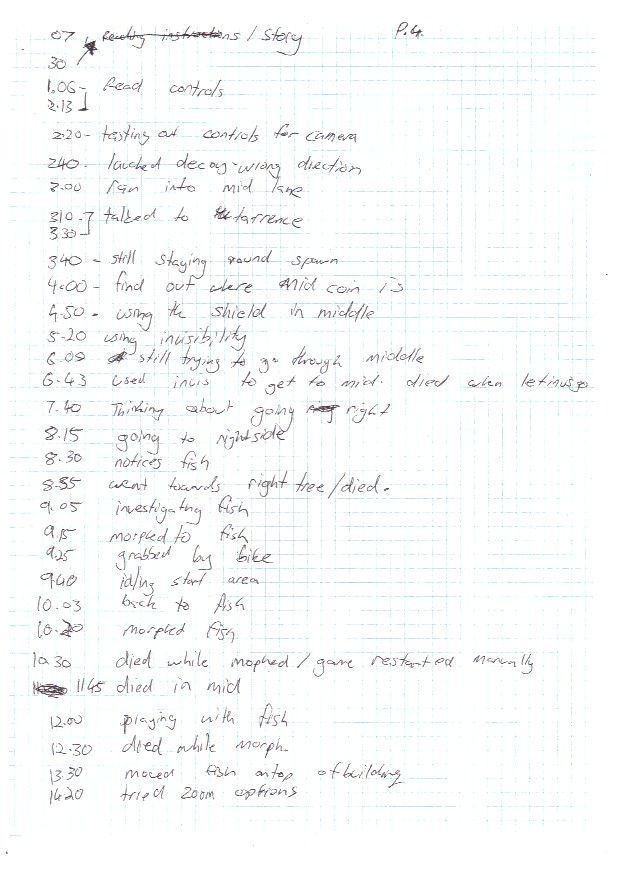 07 Reading instructions / Story P.4.
30
1.06- Read controls
2.13
2.20- testing out controls for camera
240. lauched decoy-wrong direction
3.00 ran into mid lane
310-7 talked to tarrence
330
340 - still staying round spawn
4.00 - find out where Mid coin is
4.50 - using the shield in middle
5-20 using invisibility
6.09 still trying to go through middle
6.43 used invis to get to mid. died when let invis go
7.40 Thinking about going right
8.15 going to rightside
8.30 notices fish
8.55 went towards right tree/died.
9.05 investigating fish
9.15 morphed to fish
9.25 grabbed by bike
9.40 idling start area
10.03 back to fish
10.20 morphed fish
10.30 died while mophed / game restarted manually
1145 died in mid
12.00 playing with fish
12.30 died while morph.
13.30 moved fish ontop of building
1420 tried zoom options